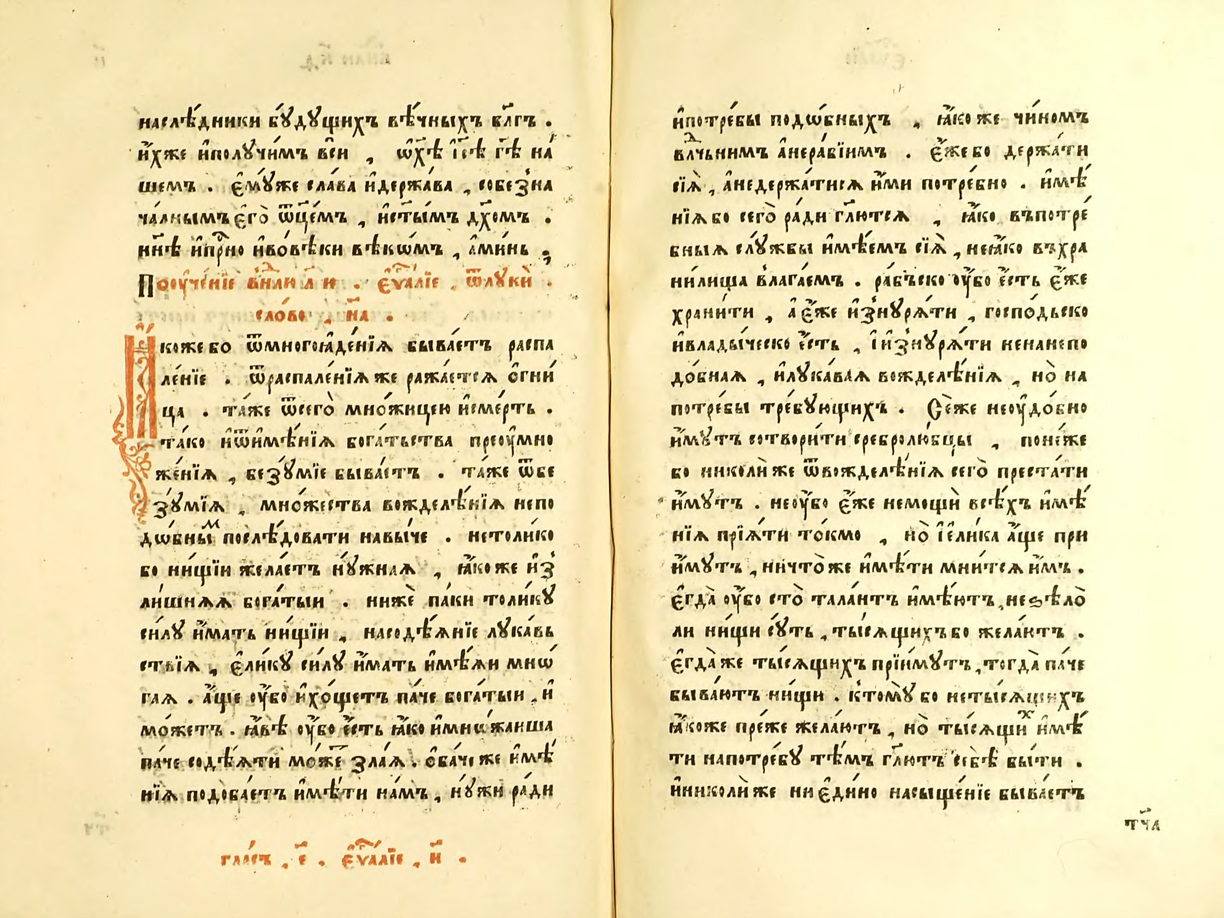 наслѣ́дники бꙋ́дꙋщихъ вѣ́чныхъ бл҃гъ .
и҆́хже и҆получи́мъ вси , ѡ҆хѣ і҆с҃ѣ гд҇ѣ на́
шемъ . є҆мꙋ́же сла́ва и҆держа́ва , собезна
ча́лнымъ є҆го̀ ѿц҃емъ , и҆ст҃ымъ дх҃омъ .
нн҃ѣ и҆при҇но и҆во́вѣки вѣ́кѡмъ , а҆ми́нь .
Поѹче́нїе внⷣлю л и . є҆ѵ҃алїе . ѿлꙋкѝ .
сло́во , н҃а .
Ꙗ҆́коже бо ѿмногоꙗде́нїѧ быва́етъ распа
ле́нїе . ѿраспале́нїѧ же ража́етсѧ ѻ҆гни́
ца . та́же ѿсего̀ мно́жицею и҆сме́рть .
та́ко и҆ѿи҆мѣ́нїѧ бога́тьства преѹмно
же́нїѧ , безꙋ́мїе быва́етъ . та́же ѿбе
зꙋ́мїѧ , мно́жества вожделѣ́нїѧ непо
до́бныⷨ послѣ́довати навы́че . нетоли́ко
бо ни́щїи жела́етъ нꙋ́жнаѧ , ꙗ҆́коже и҆з
ли́шнѧѧ бога́тыи . нижѐ па́ки толи́кꙋ
си́лꙋ и҆́мать ни́щїи , насодѣ́ѧнїе лꙋка́вь
ствїѧ , є҆ли́кꙋ си́лꙋ и҆́мать и҆мѣ́ѧи мнѡ́
гаѧ . а҆́ще ѹ҆́бо и҆хо́щетъ па́че бога́тыи , и҆
мо́жетъ . ꙗ҆́вѣ ѹ҆́бо є҆́сть ꙗ҆́ко и҆мно́жаиша
па́че содѣ́ѧти мо́жеⷮ зла́ѧ . ѻ҆ба́че же и҆мѣ́
нїѧ подоба́етъ и҆мѣ́ти на́мъ , нꙋ́жи ра́ди
гла́съ , є҃ . є҆ѵ҃алїе , н҃ .
и҆потре́бы подѡ́бныхъ , ꙗ҆́ко же чи́номъ
влⷣчьнимъ а҆нера́бїимъ . є҆́же бо держа́ти
сїѧ̀ , а҆недержа́тисѧ и҆́ми потре́бно . и҆мѣ́
нїѧ бо сего̀ ра́ди гл҃ютсѧ , ꙗ҆́ко въпотре́
бныѧ слꙋ́жбы и҆мѣ́емъ сїѧ̀ , неꙗ҆́ко въхра
ни́лища влага́емъ . ра́бъско ѹ҆́бо є҆́сть є҆́же
храни́ти , а҆ є҆́же и҆знꙋрѧ́ти , госпо́дьско
и҆влады́ческо є҆́сть , і҆изнꙋрѧ́ти ненанепо
до́бнаѧ , и҆лꙋка́ваѧ вожделѣ́нїѧ , но̀ на
потре́бы тре́бꙋющихъ . Се́же неѹдо́бно
и҆́мꙋтъ сотвори́ти сребролю́бцы , поне́же
бо николи́же ѿвожделѣ́нїѧ сего̀ преста́ти
и҆́мꙋтъ . неѹ́бо є҆́же немощѝ всѣ́хъ и҆мѣ́
нїѧ прїѧ́ти то́кмо , но̀ і҆єли́ка а҆́ще при
и҆́мꙋтъ , ничто́же и҆мѣ́ти мни́тсѧ и҆́мъ .
є҆гда̀ ѹ҆́бо сто̀ тала́нтъ и҆мѣ́ютъ , неѕѣло̀
ли ни́щи сꙋ́ть , ты́сѧщихъ бо жела́ютъ .
є҆гда́же ты́сѧщихъ прїи́мꙋтъ , тогда̀ па́че
быва́ютъ ни́щи . ктомꙋ̀ бо нетысѧщихъ
ꙗ҆́коже пре́же жела́ютъ , но̀ ты́сѧщиⷯ и҆мѣ́
ти напотре́бꙋ тѣ́мъ гл҃ютъ себѣ̀ бы́ти .
и҆николи́же ни є҆ди́но насыще́нїе быва́етъ
тч҃а